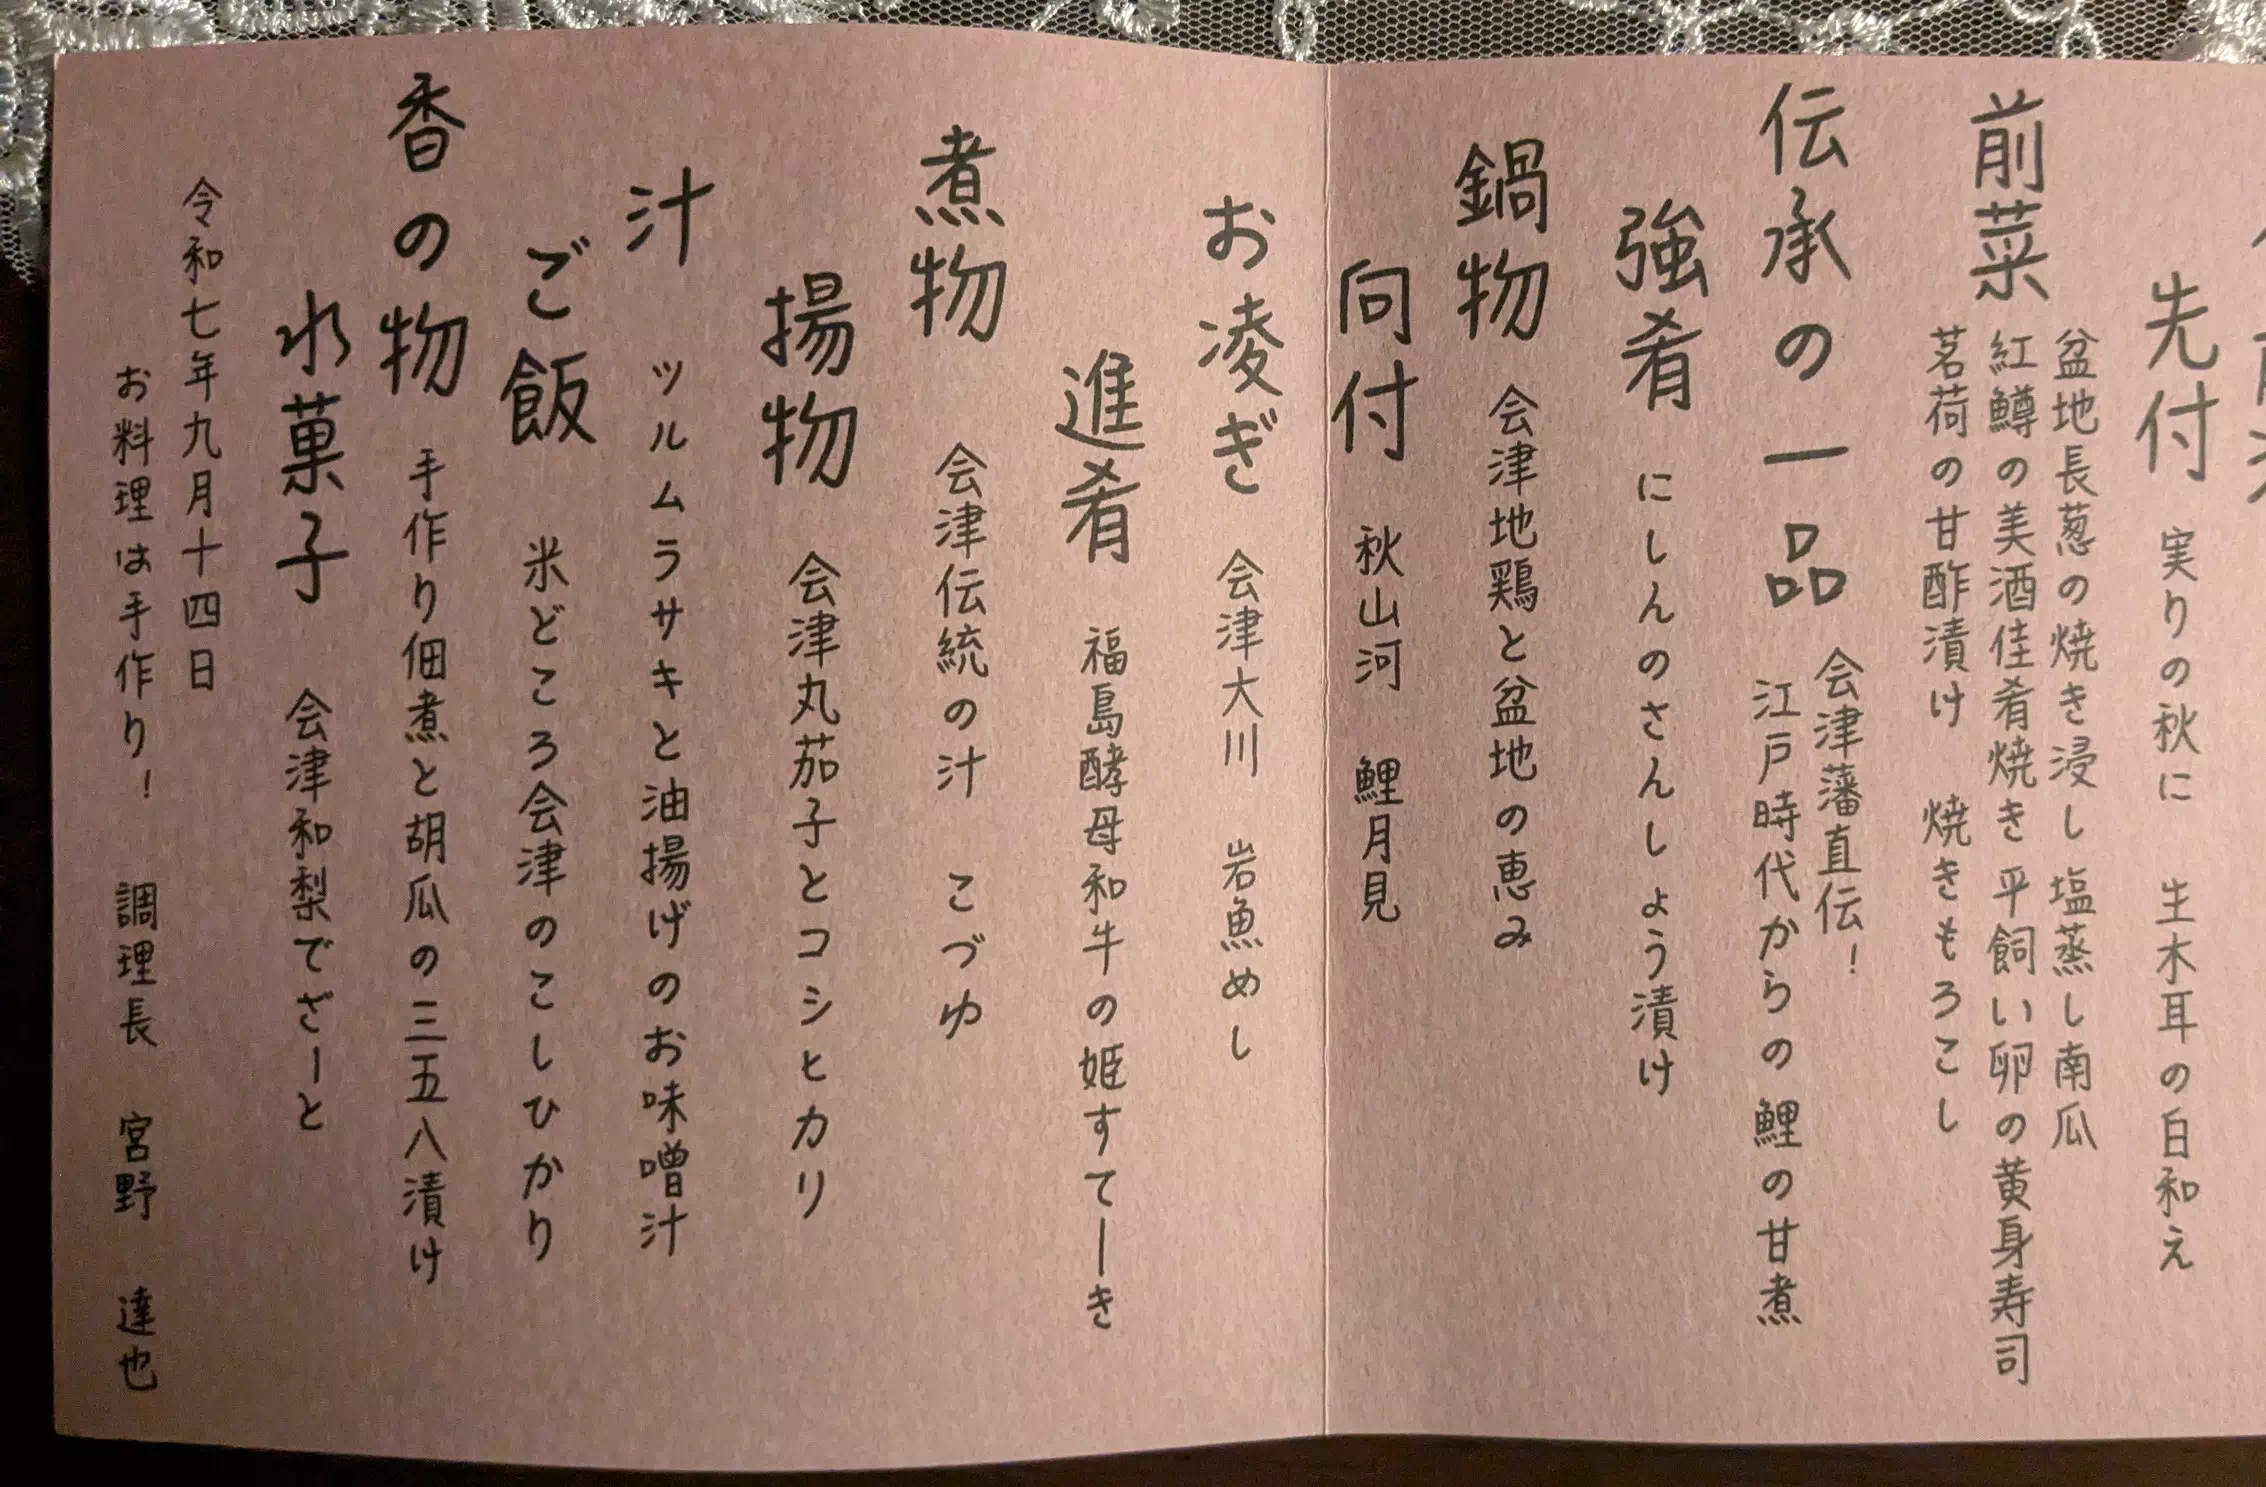 先付　実りの秋に　生木耳の白和え
前菜
盆地長葱の焼き浸し 塩蒸し南瓜
紅鱒の美酒佳肴焼き 平飼い卵の黄身寿司
茗荷の甘酢漬け　焼きもろこし
伝承の一品
会津藩直伝！
江戸時代からの鯉の甘煮
強肴　にしんのさんしょう漬け
鍋物　会津地鶏と盆地の恵み
向付　秋山河　鯉月見
お凌ぎ　会津大川　岩魚めし
進肴　福島酵母和牛の姫すてーき
煮物　会津伝統の汁　こづゆ
揚物　会津丸茄子とコシヒカリ
汁　ツルムラサキと油揚げのお味噌汁
ご飯　米どころ会津のこしひかり
香の物　手作り佃煮と胡瓜の三五八漬け
水菓子　会津和梨でざーと
令和七年九月十四日
お料理は手作り！　調理長　宮野　達也